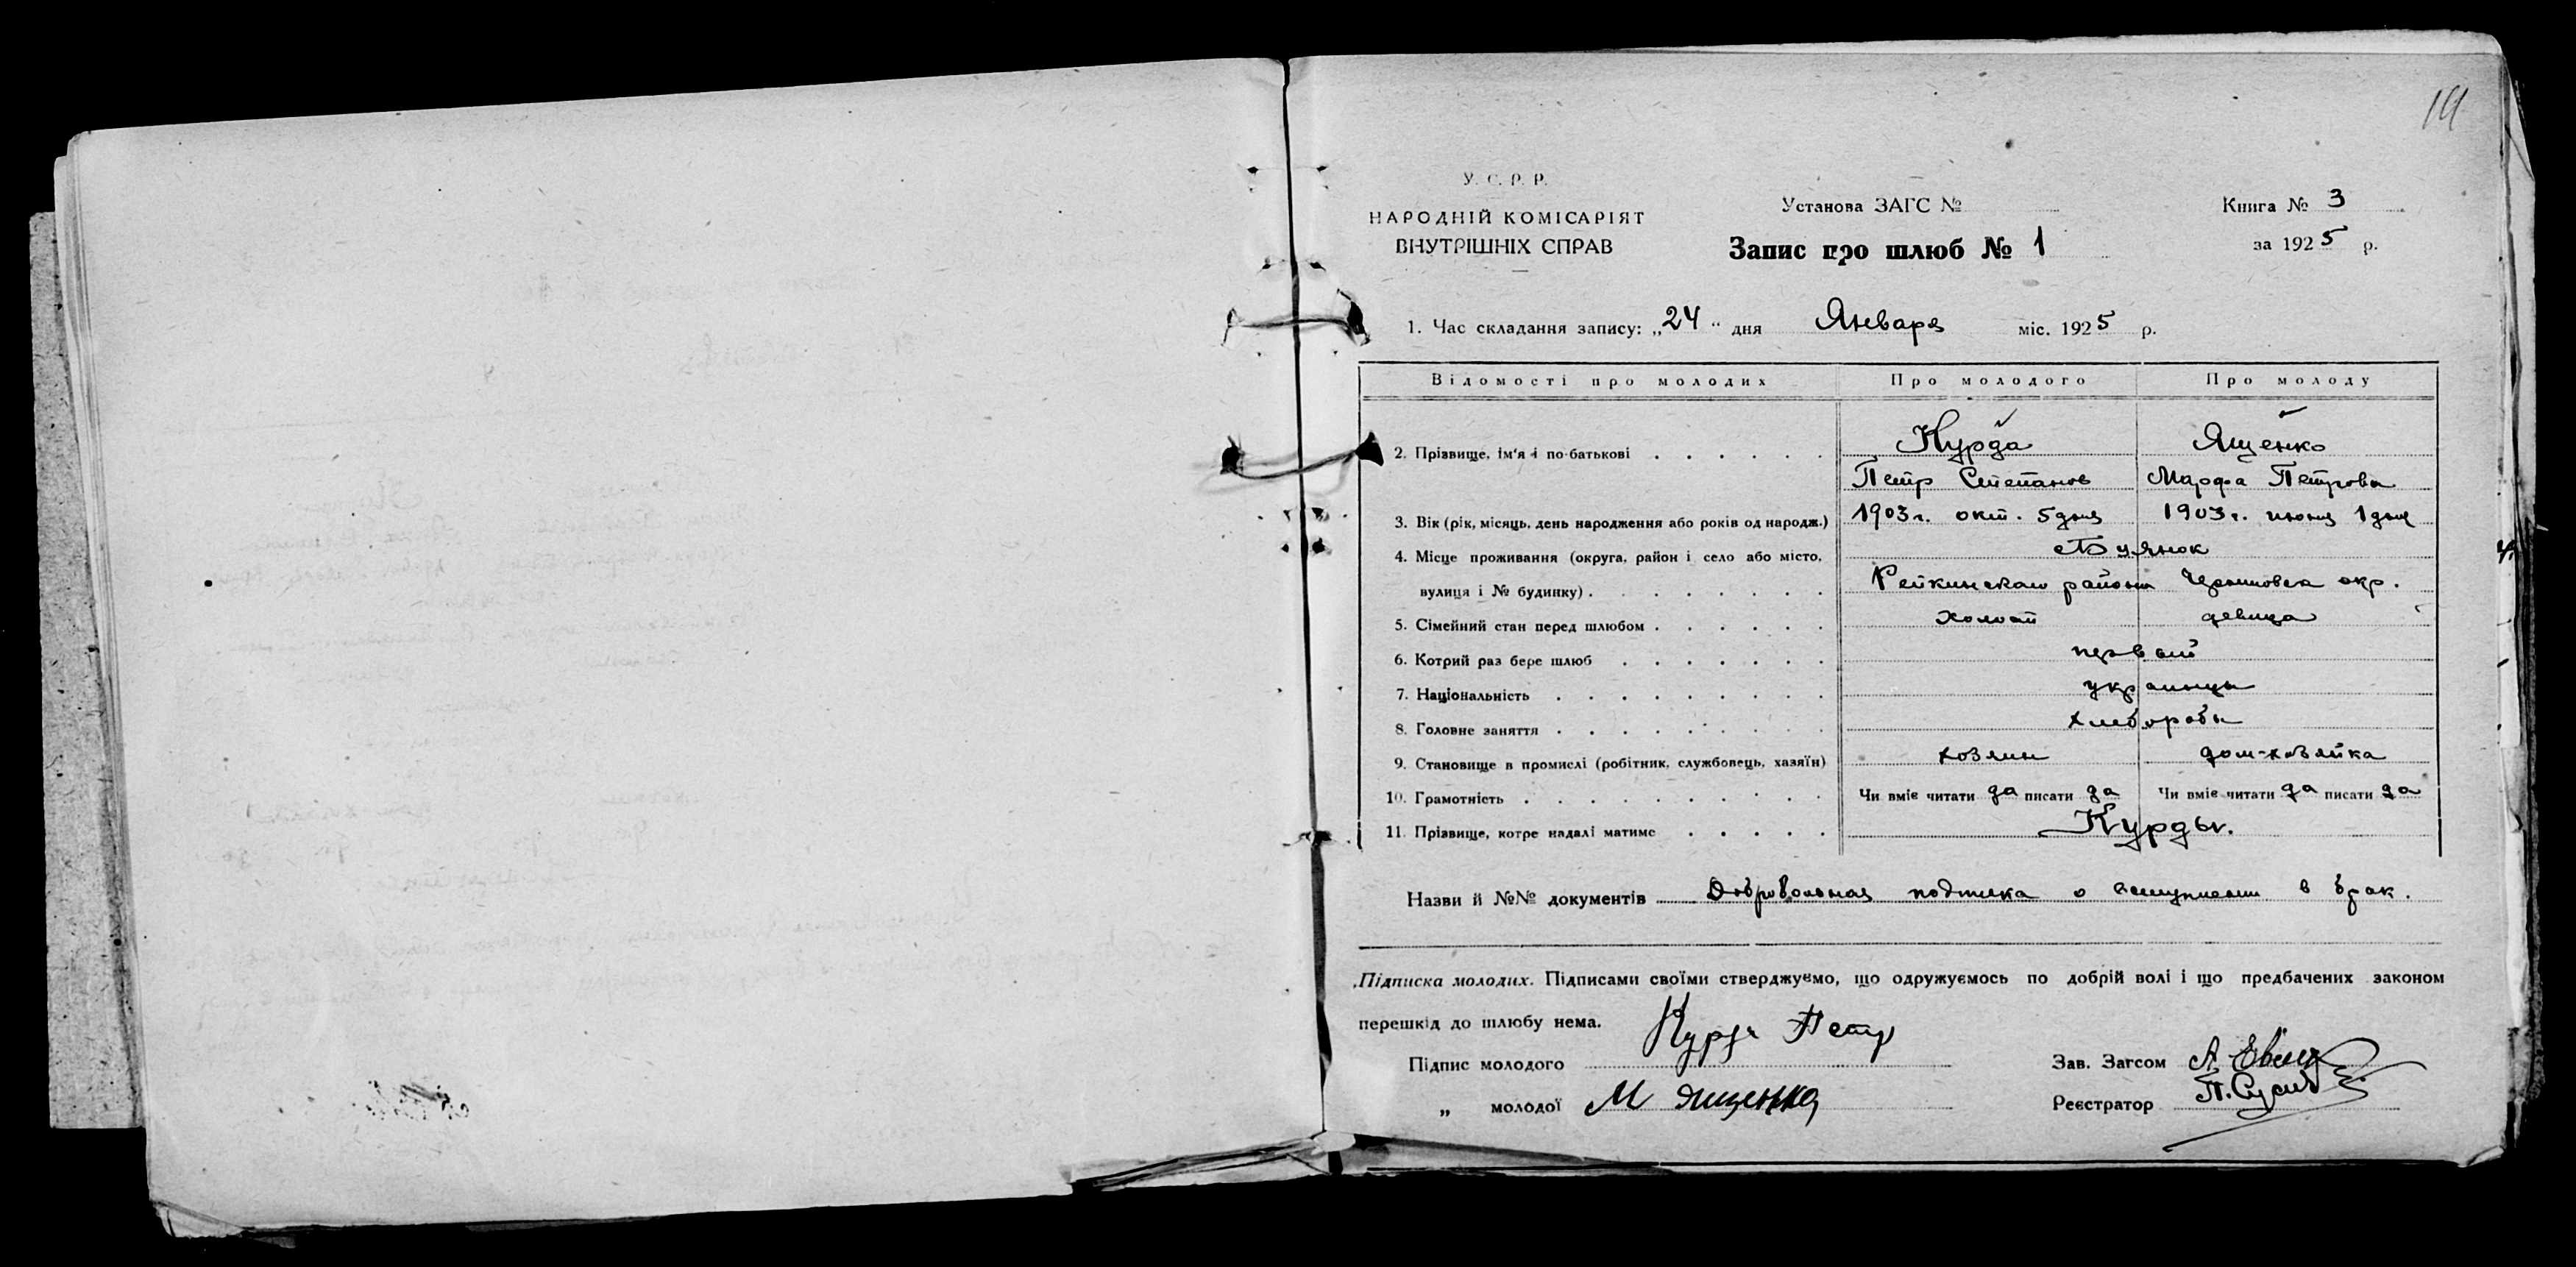 У. С. Р. Р.
НАРОДНІЙ КОМІСАРІЯТ
ВНУТРІШНІХ СПРАВ
Установа ЗАГС №
Запис про шлюб № 1
Книга № 3
за 1925 р.
1. Час складання запису: „24“ дня Января міс. 1925 р.
Відомості про молодих Про молодого Про молоду
2. Прізвище, ім'я і по-батькові Курда Ященко
Петр Степанов Марфа Петрова
3. Вік (рік, місяць, день народження або років од народж.) 1903 г. окт. 5 дня 1903 г. июня 1 дня
4. Місце проживання (округа, район і село або місто,
вулиця і № будинку) района окр.
5. Сімейний стан перед шлюбом холост девица
6. Котрий раз бере шлюб первый
7. Національність украинцы
8. Головне заняття хлеборобы
9. Становище в промислі (робітник, службовець, хазяїн) хозяин дом-хозяйка
10. Грамотність Чи вміє читати да писати да Чи вміє читати да писати да
11. Прізвище, котре надалі матиме Курды.
Назви й №№ документів Добровольная подписка о вступлении в брак.
Підписка молодих. Підписами своїми стверджуємо, що одружуємось по добрій волі і що предбачених законом
перешкід до шлюбу нема.
Підпис молодого Курда Петр
„ молодої М Ященко
Зав. Загсом А.
Реєстратор П.